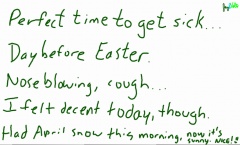 Perfect time to get sick...
Day before Easter.
Nose blowing, cough...
I felt decent today, though.
Had April snow this morning, now it's
sunny. NICE!!